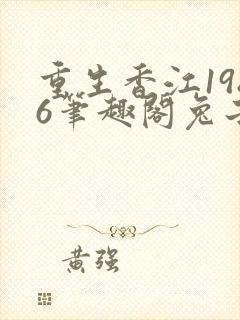 重生香江19
6笔趣阁免
黄强